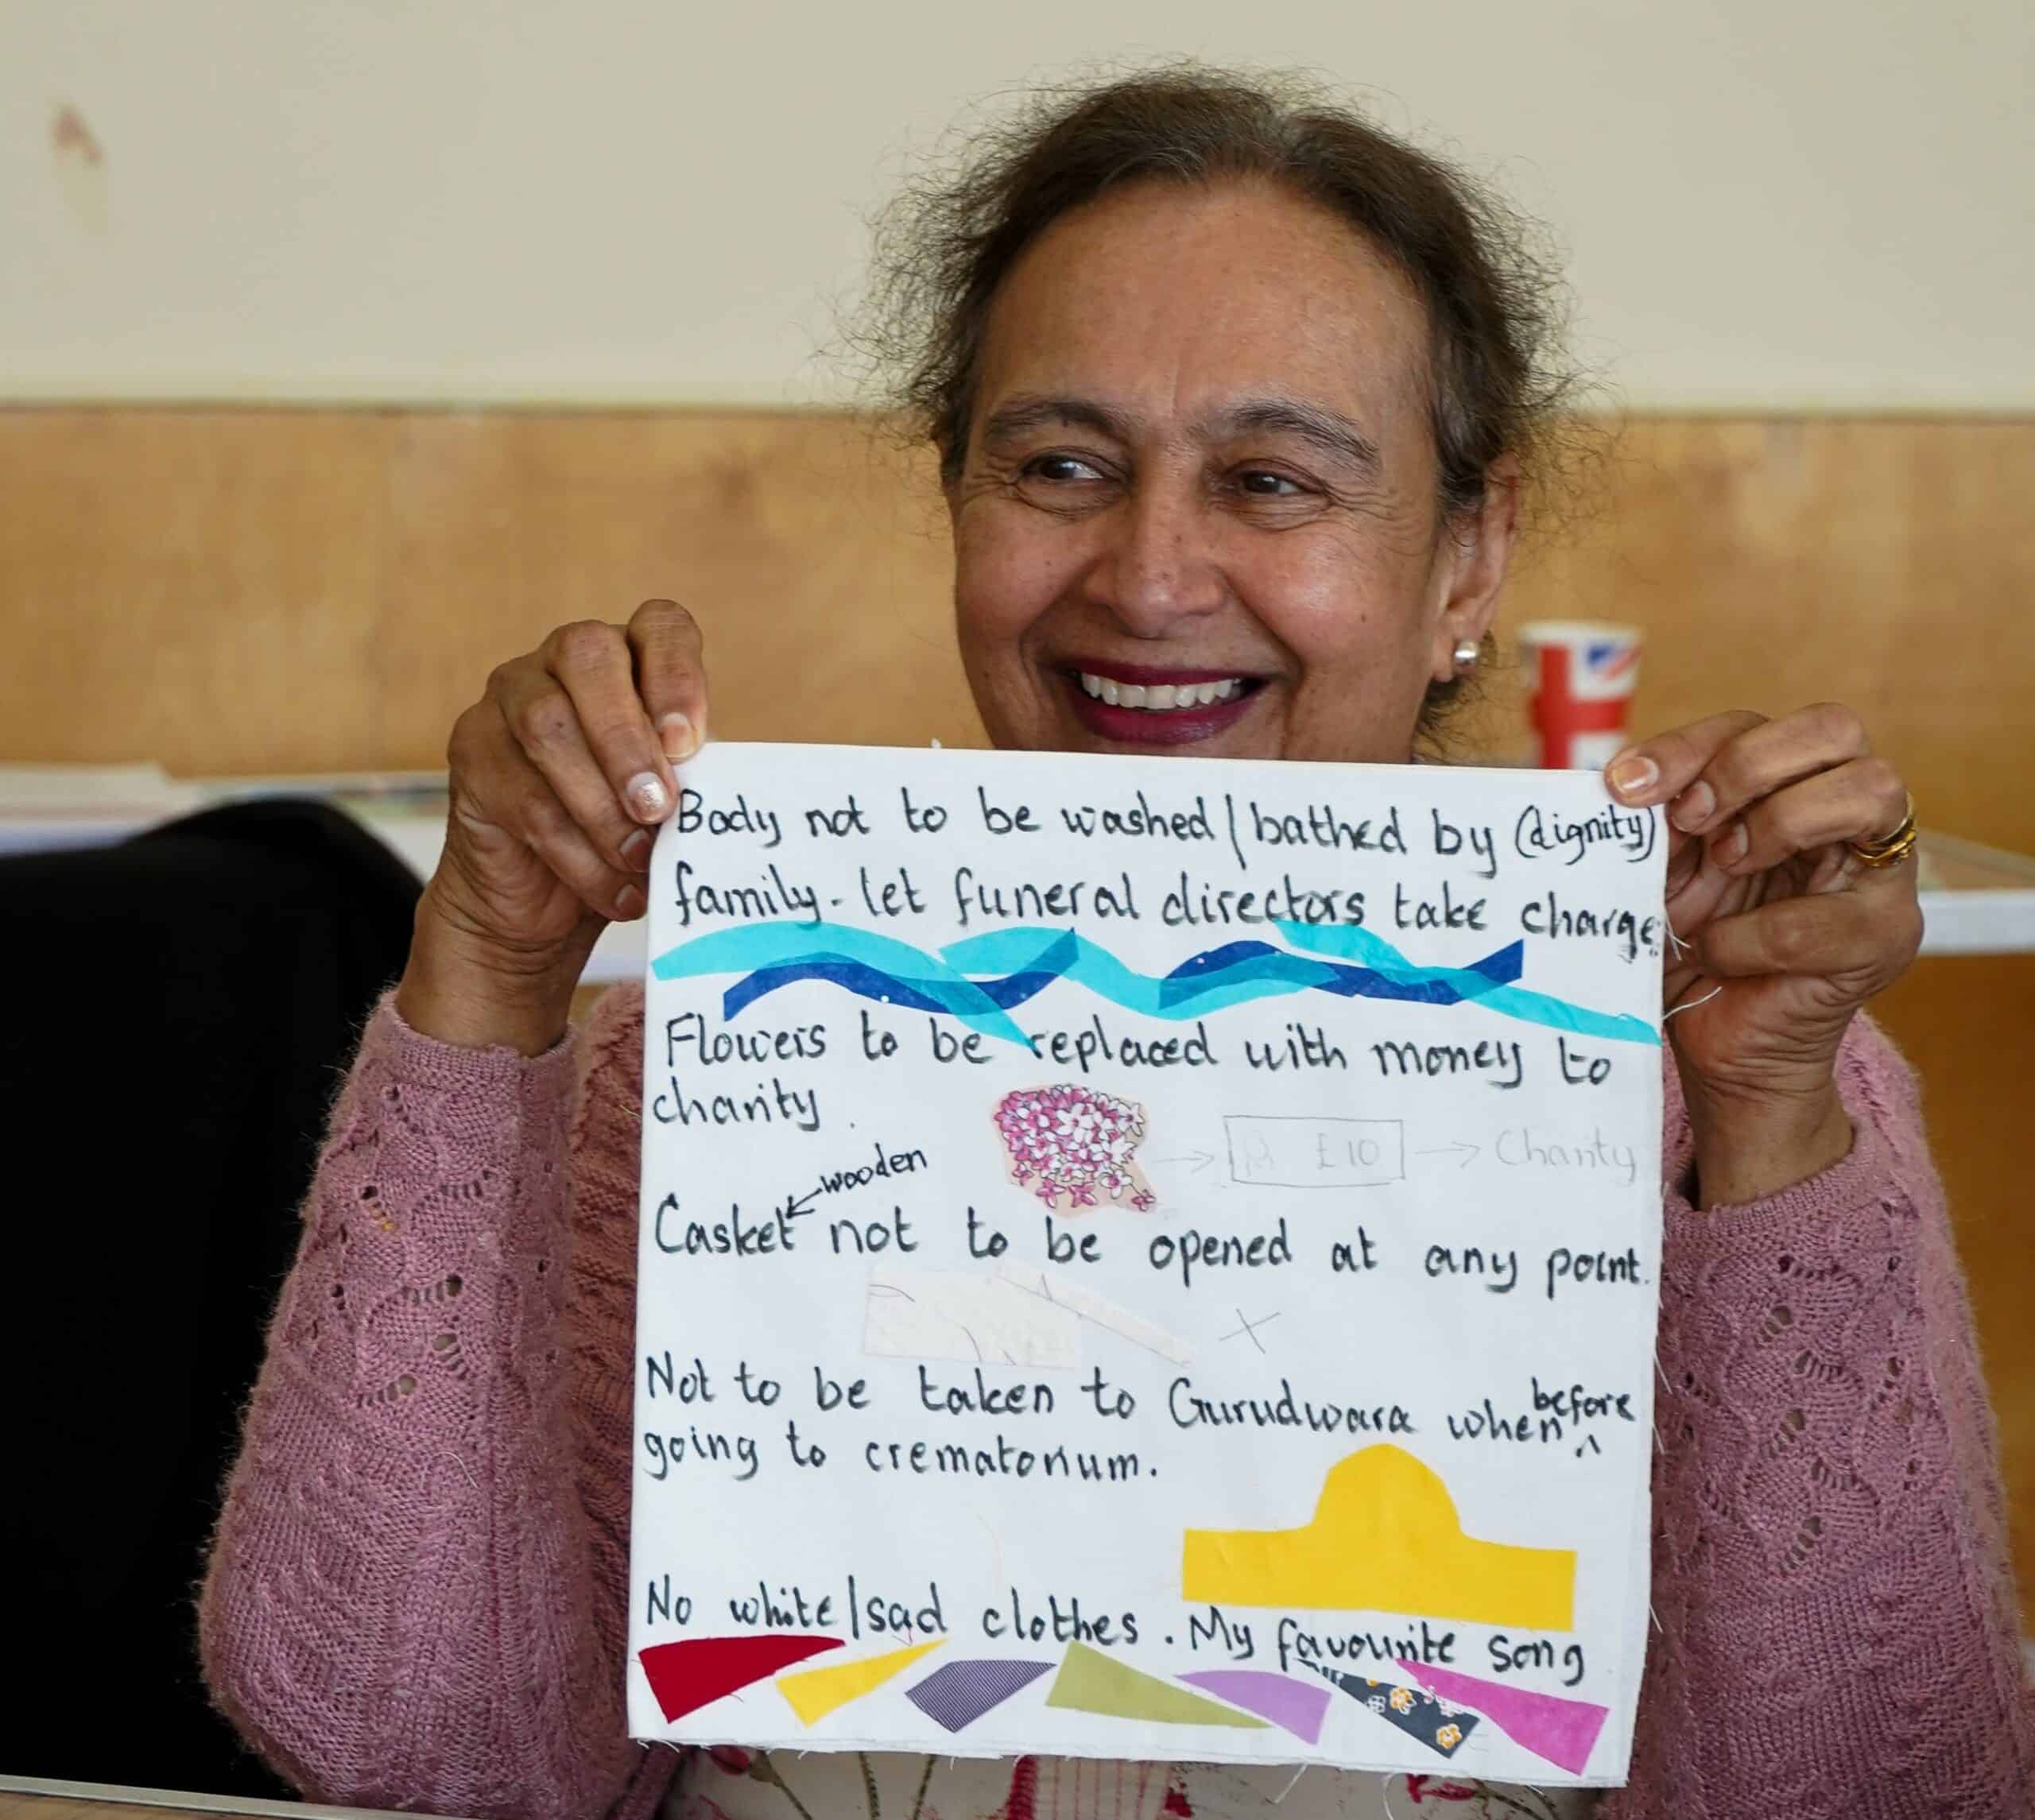 Body not to be washed/bathed by (dignity)
family - let funeral directors take charge.
Flowers to be replaced with money to
charity.
£10 → Charity
wooden
Casket not to be opened at any point.
Not to be taken to Gurudwara when before
going to crematorium.
No white/sad clothes. My favourite song